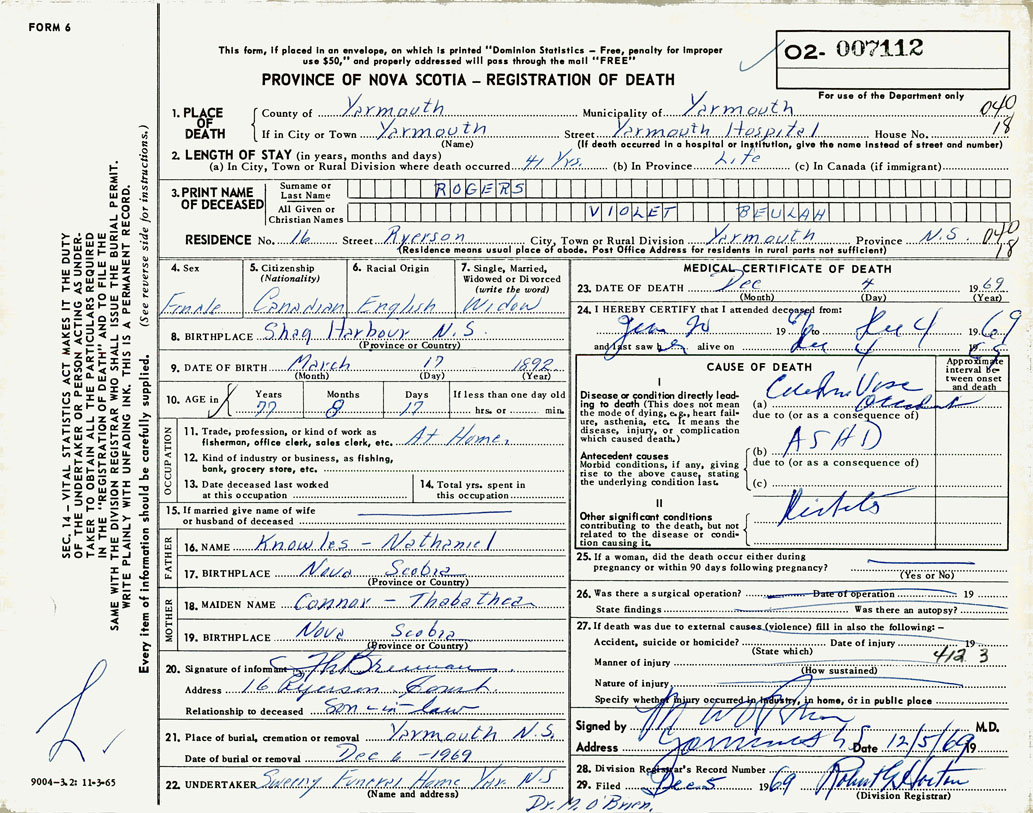 FORM 6
This form, if placed in an envelope, on which is printed "Dominion Statistics – Free, penalty for improper
use $50," and properly addressed will pass through the mail "FREE"
PROVINCE OF NOVA SCOTIA – REGISTRATION OF DEATH
02- 007112
For use of the Department only
1. PLACE OF DEATH { County of Yarmouth Municipality of Yarmouth 040
If in City or Town Yarmouth Street Yarmouth Hospital House No. 18
(Name) (If death occurred in a hospital or institution, give the name instead of street and number)
2. LENGTH OF STAY (in years, months and days)
(a) In City, Town or Rural Division where death occurred 41 Yrs. (b) In Province Life (c) In Canada (if immigrant)
3. PRINT NAME OF DECEASED
Surname or Last Name ROGERS
All Given or Christian Names VIOLET BEULAH
RESIDENCE No. 16 Street Ryerson City, Town or Rural Division Yarmouth Province N.S. 040
(Residence means usual place of abode. Post Office Address for residents in rural parts not sufficient) 18
4. Sex Female
5. Citizenship (Nationality) Canadian
6. Racial Origin English
7. Single, Married, Widowed or Divorced (write the word) Widow
8. BIRTHPLACE Shag Harbour N.S.
(Province or Country)
9. DATE OF BIRTH March 17 1892
(Month) (Day) (Year)
10. AGE in Years Months Days If less than one day old
77 8 17 hrs. or min.
OCCUPATION
11. Trade, profession, or kind of work as
fisherman, office clerk, sales clerk, etc. At Home.
12. Kind of industry or business, as fishing,
bank, grocery store, etc.
13. Date deceased last worked
at this occupation
14. Total yrs. spent in
this occupation
15. If married give name of wife
or husband of deceased
FATHER
16. NAME Knowles – Nathaniel
17. BIRTHPLACE Nova Scotia
(Province or Country)
MOTHER
18. MAIDEN NAME Connor – Thabathea
19. BIRTHPLACE Nova Scotia
(Province or Country)
20. Signature of informant
Address 16 Ryerson Court.
Relationship to deceased Son-in-law
21. Place of burial, cremation or removal Yarmouth N.S.
Date of burial or removal Dec 6 – 1969
22. UNDERTAKER Sweeny Funeral Home Yar. N.S
(Name and address)
Dr. M. O'Brien.
MEDICAL CERTIFICATE OF DEATH
23. DATE OF DEATH Dec 4 1969
(Month) (Day) (Year)
24. I HEREBY CERTIFY that I attended deceased from:
19 to Dec 4 1969
and last saw her alive on Dec 4 19
CAUSE OF DEATH
Approximate interval between onset and death
I
Disease or condition directly leading to death (This does not mean
the mode of dying, e.g., heart failure, asthenia, etc. It means the
disease, injury, or complication
which caused death.)
(a)
due to (or as a consequence of)
Antecedent causes
Morbid conditions, if any, giving
rise to the above cause, stating
the underlying condition last.
(b) ASHD
due to (or as a consequence of)
(c)
II
Other significant conditions
contributing to the death, but not
related to the disease or condition causing it.
25. If a woman, did the death occur either during
pregnancy or within 90 days following pregnancy?
(Yes or No)
26. Was there a surgical operation? Date of operation 19
State findings Was there an autopsy?
27. If death was due to external causes (violence) fill in also the following: –
Accident, suicide or homicide? Date of injury 19
(State which) 412 3
Manner of injury
(How sustained)
Nature of injury
Specify whether injury occurred in industry, in home, or in public place
Signed by M.D.
Address Date 12/5/69 19
28. Division Registrar's Record Number
29. Filed Dec 5 1969
(Division Registrar)
SEC. 14 – VITAL STATISTICS ACT MAKES IT THE DUTY
OF THE UNDERTAKER OR PERSON ACTING AS UNDER-
TAKER TO OBTAIN ALL THE PARTICULARS REQUIRED
IN THE "REGISTRATION OF DEATH" AND TO FILE THE
SAME WITH THE DIVISION REGISTRAR WHO SHALL ISSUE THE BURIAL PERMIT.
WRITE PLAINLY WITH UNFADING INK. THIS IS A PERMANENT RECORD.
Every item of information should be carefully supplied. (See reverse side for instructions.)
9004-3.2: 11-3-65